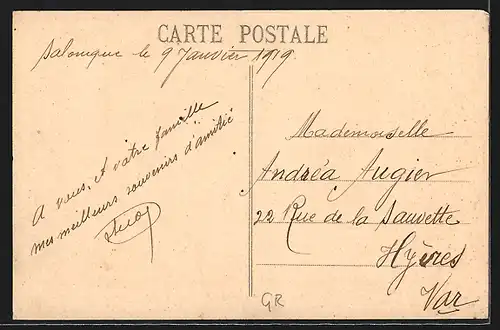 CARTE POSTALE
Salonique le 9 Janvier 1919
A vous, et vôtre famille
mes meilleurs souvenirs d'amitié
Mademoiselle
Andréa Augier
22 Rue de la Sauvette
Hyères
Var
GR